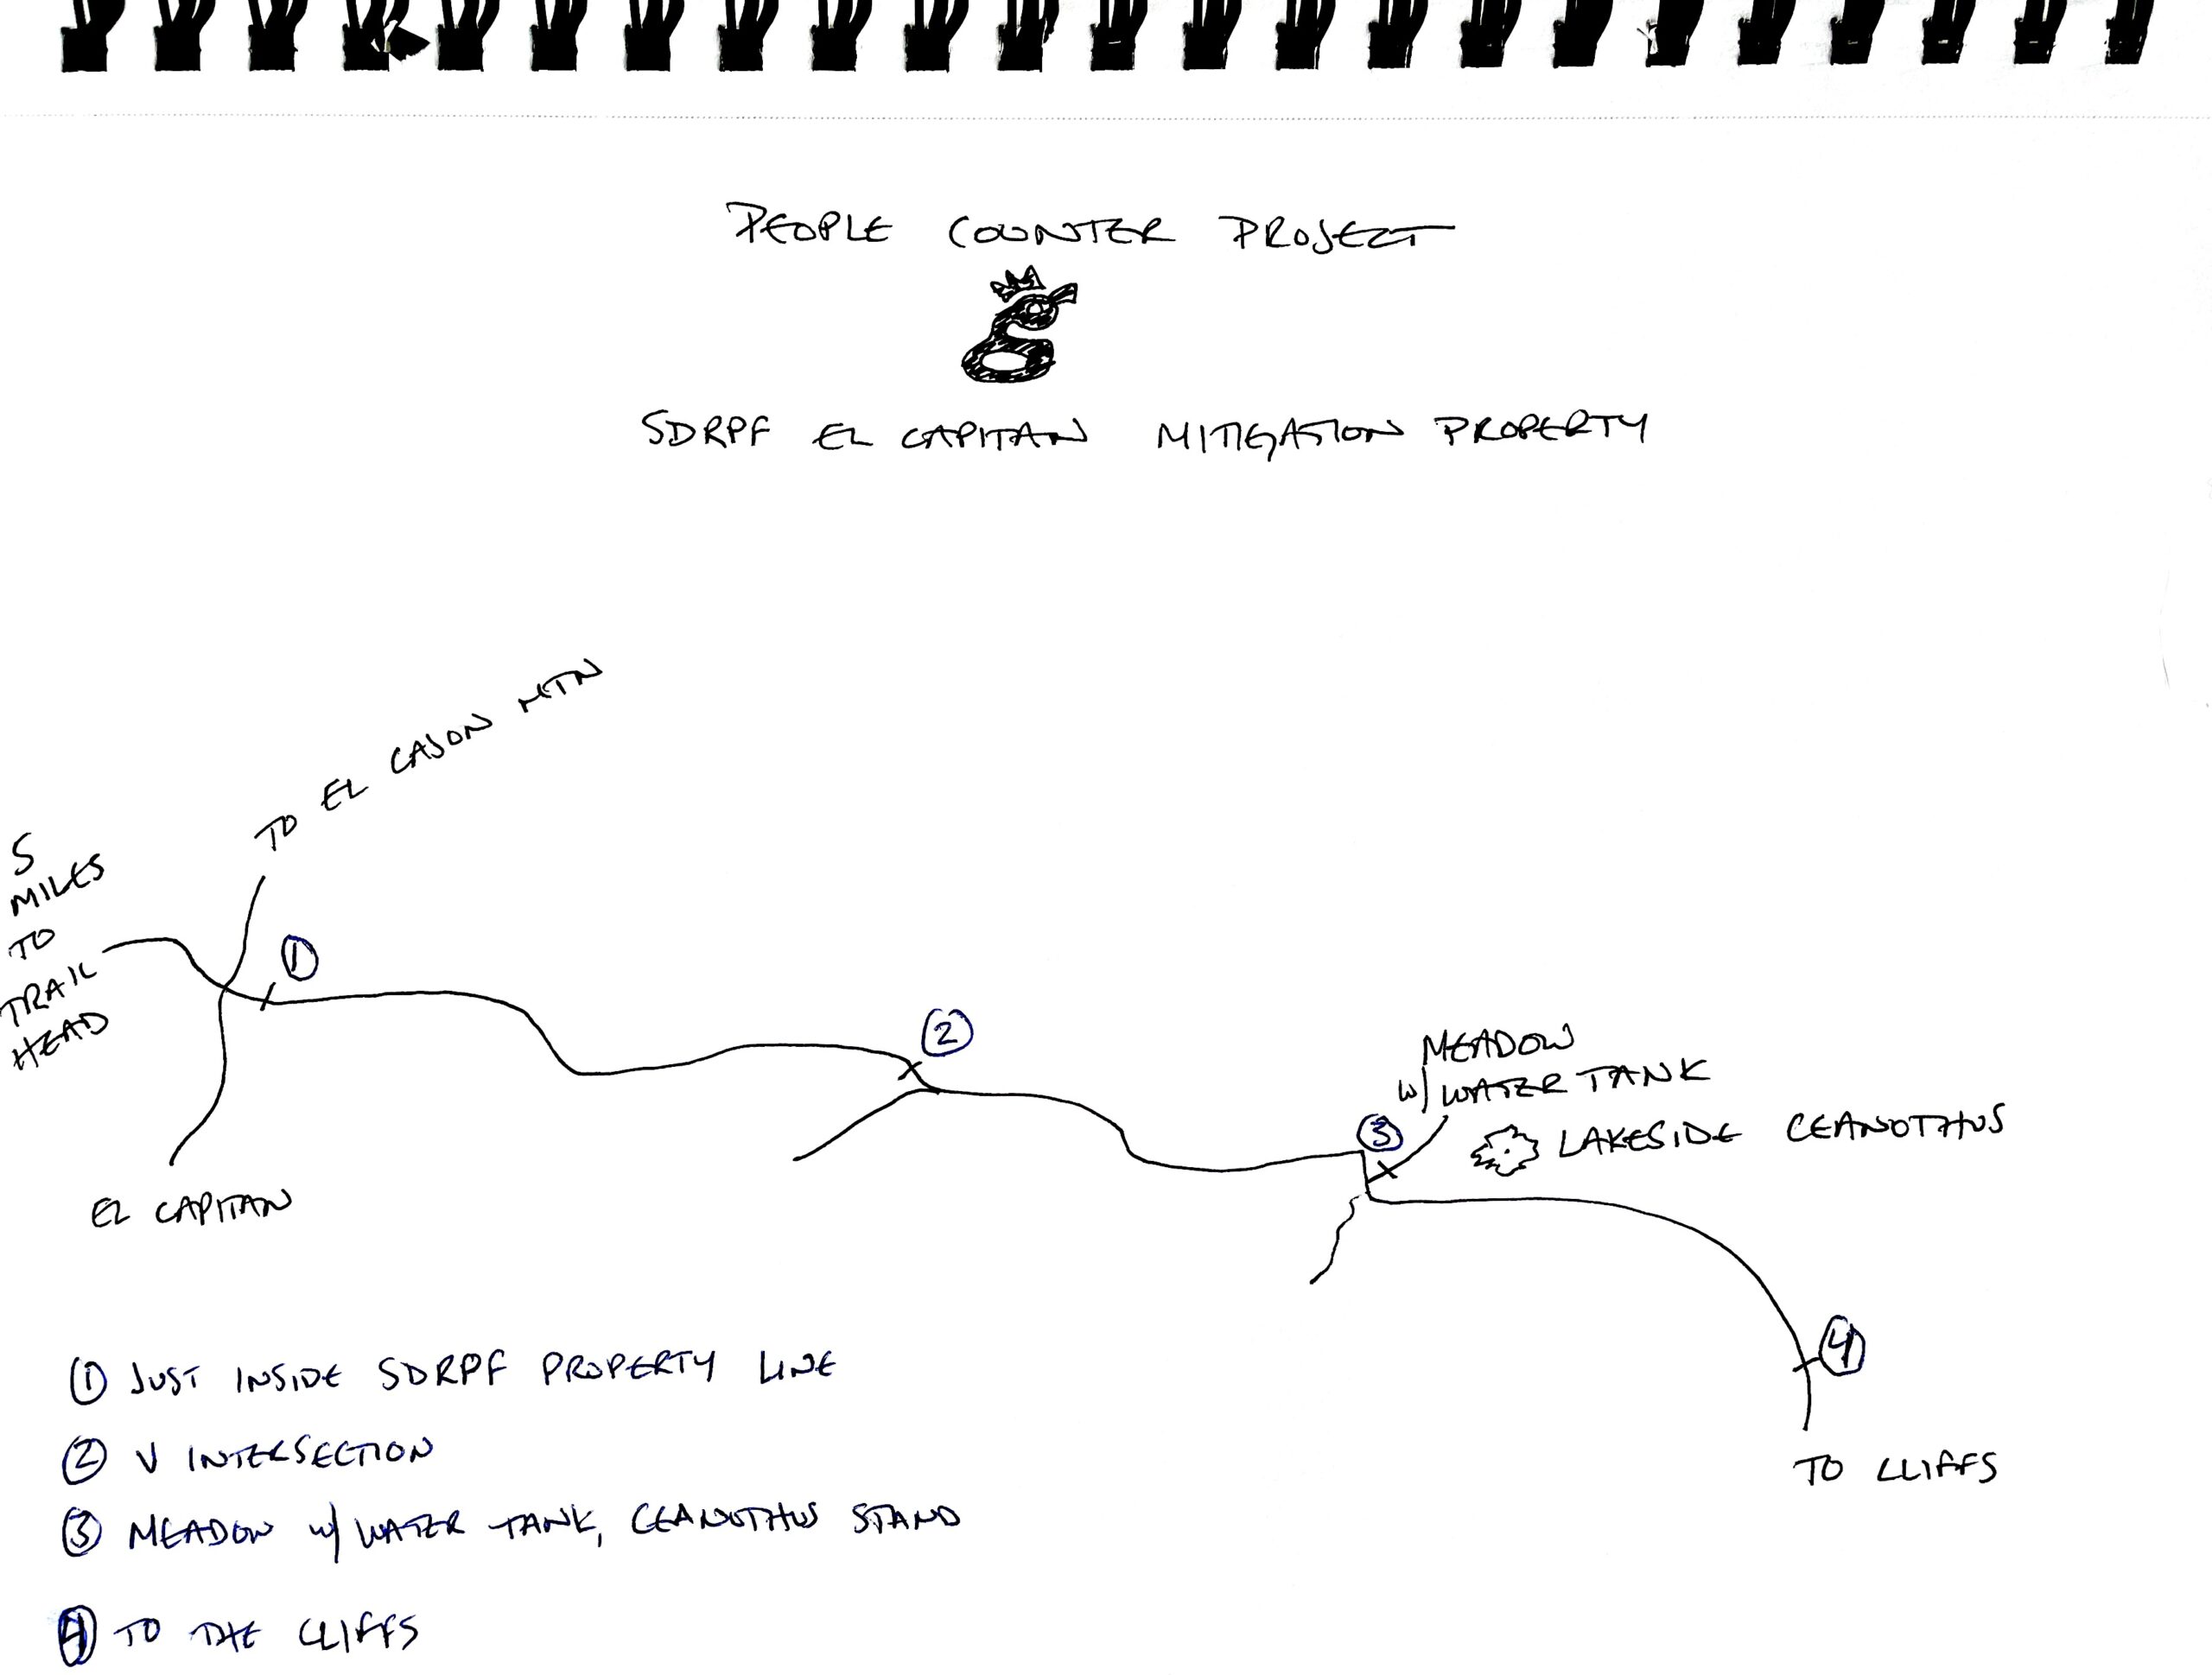 PEOPLE COUNTER PROJECT
SDRPF EL CAPITAN MITIGATION PROPERTY
TO EL CAJON MTN
5
MILES
TO
TRAIL
HEAD
1
2
MEADOW
W/ WATER TANK
3
LAKESIDE CEANOTHUS
EL CAPITAN
4
TO CLIFFS
1 JUST INSIDE SDRPF PROPERTY LINE
2 V INTERSECTION
3 MEADOW W/ WATER TANK, CEANOTHUS STAND
4 TO THE CLIFFS